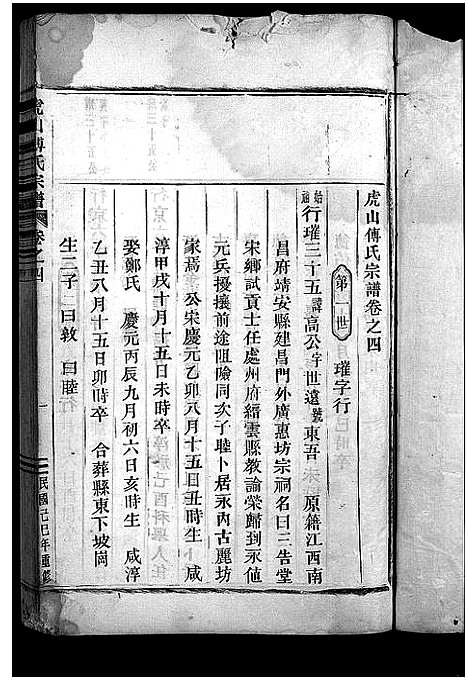 虎山傅氏宗譜卷之四
第一世 㻦字行
始祖 行㻦三十五 諱高公 字世遠 號東吾 原籍江西南
昌府靖安縣建昌門外廣惠坊宗祠名曰三告堂
宋鄉試貢士任處州府縉雲縣教諭榮歸到永値
元兵擾攘前途阻險同次子睦卜居永內古麗坊
家焉 公宋慶元乙卯八月十五日丑時生 咸
淳甲戌十月十五日未時卒
娶鄭氏 慶元丙辰九月初六日亥時生 咸淳
乙丑八月十五日卯時卒 合葬縣東下坡崗
生二子 曰敦 曰睦
虎山傅氏宗譜 卷之四 一 民國己巳年重修